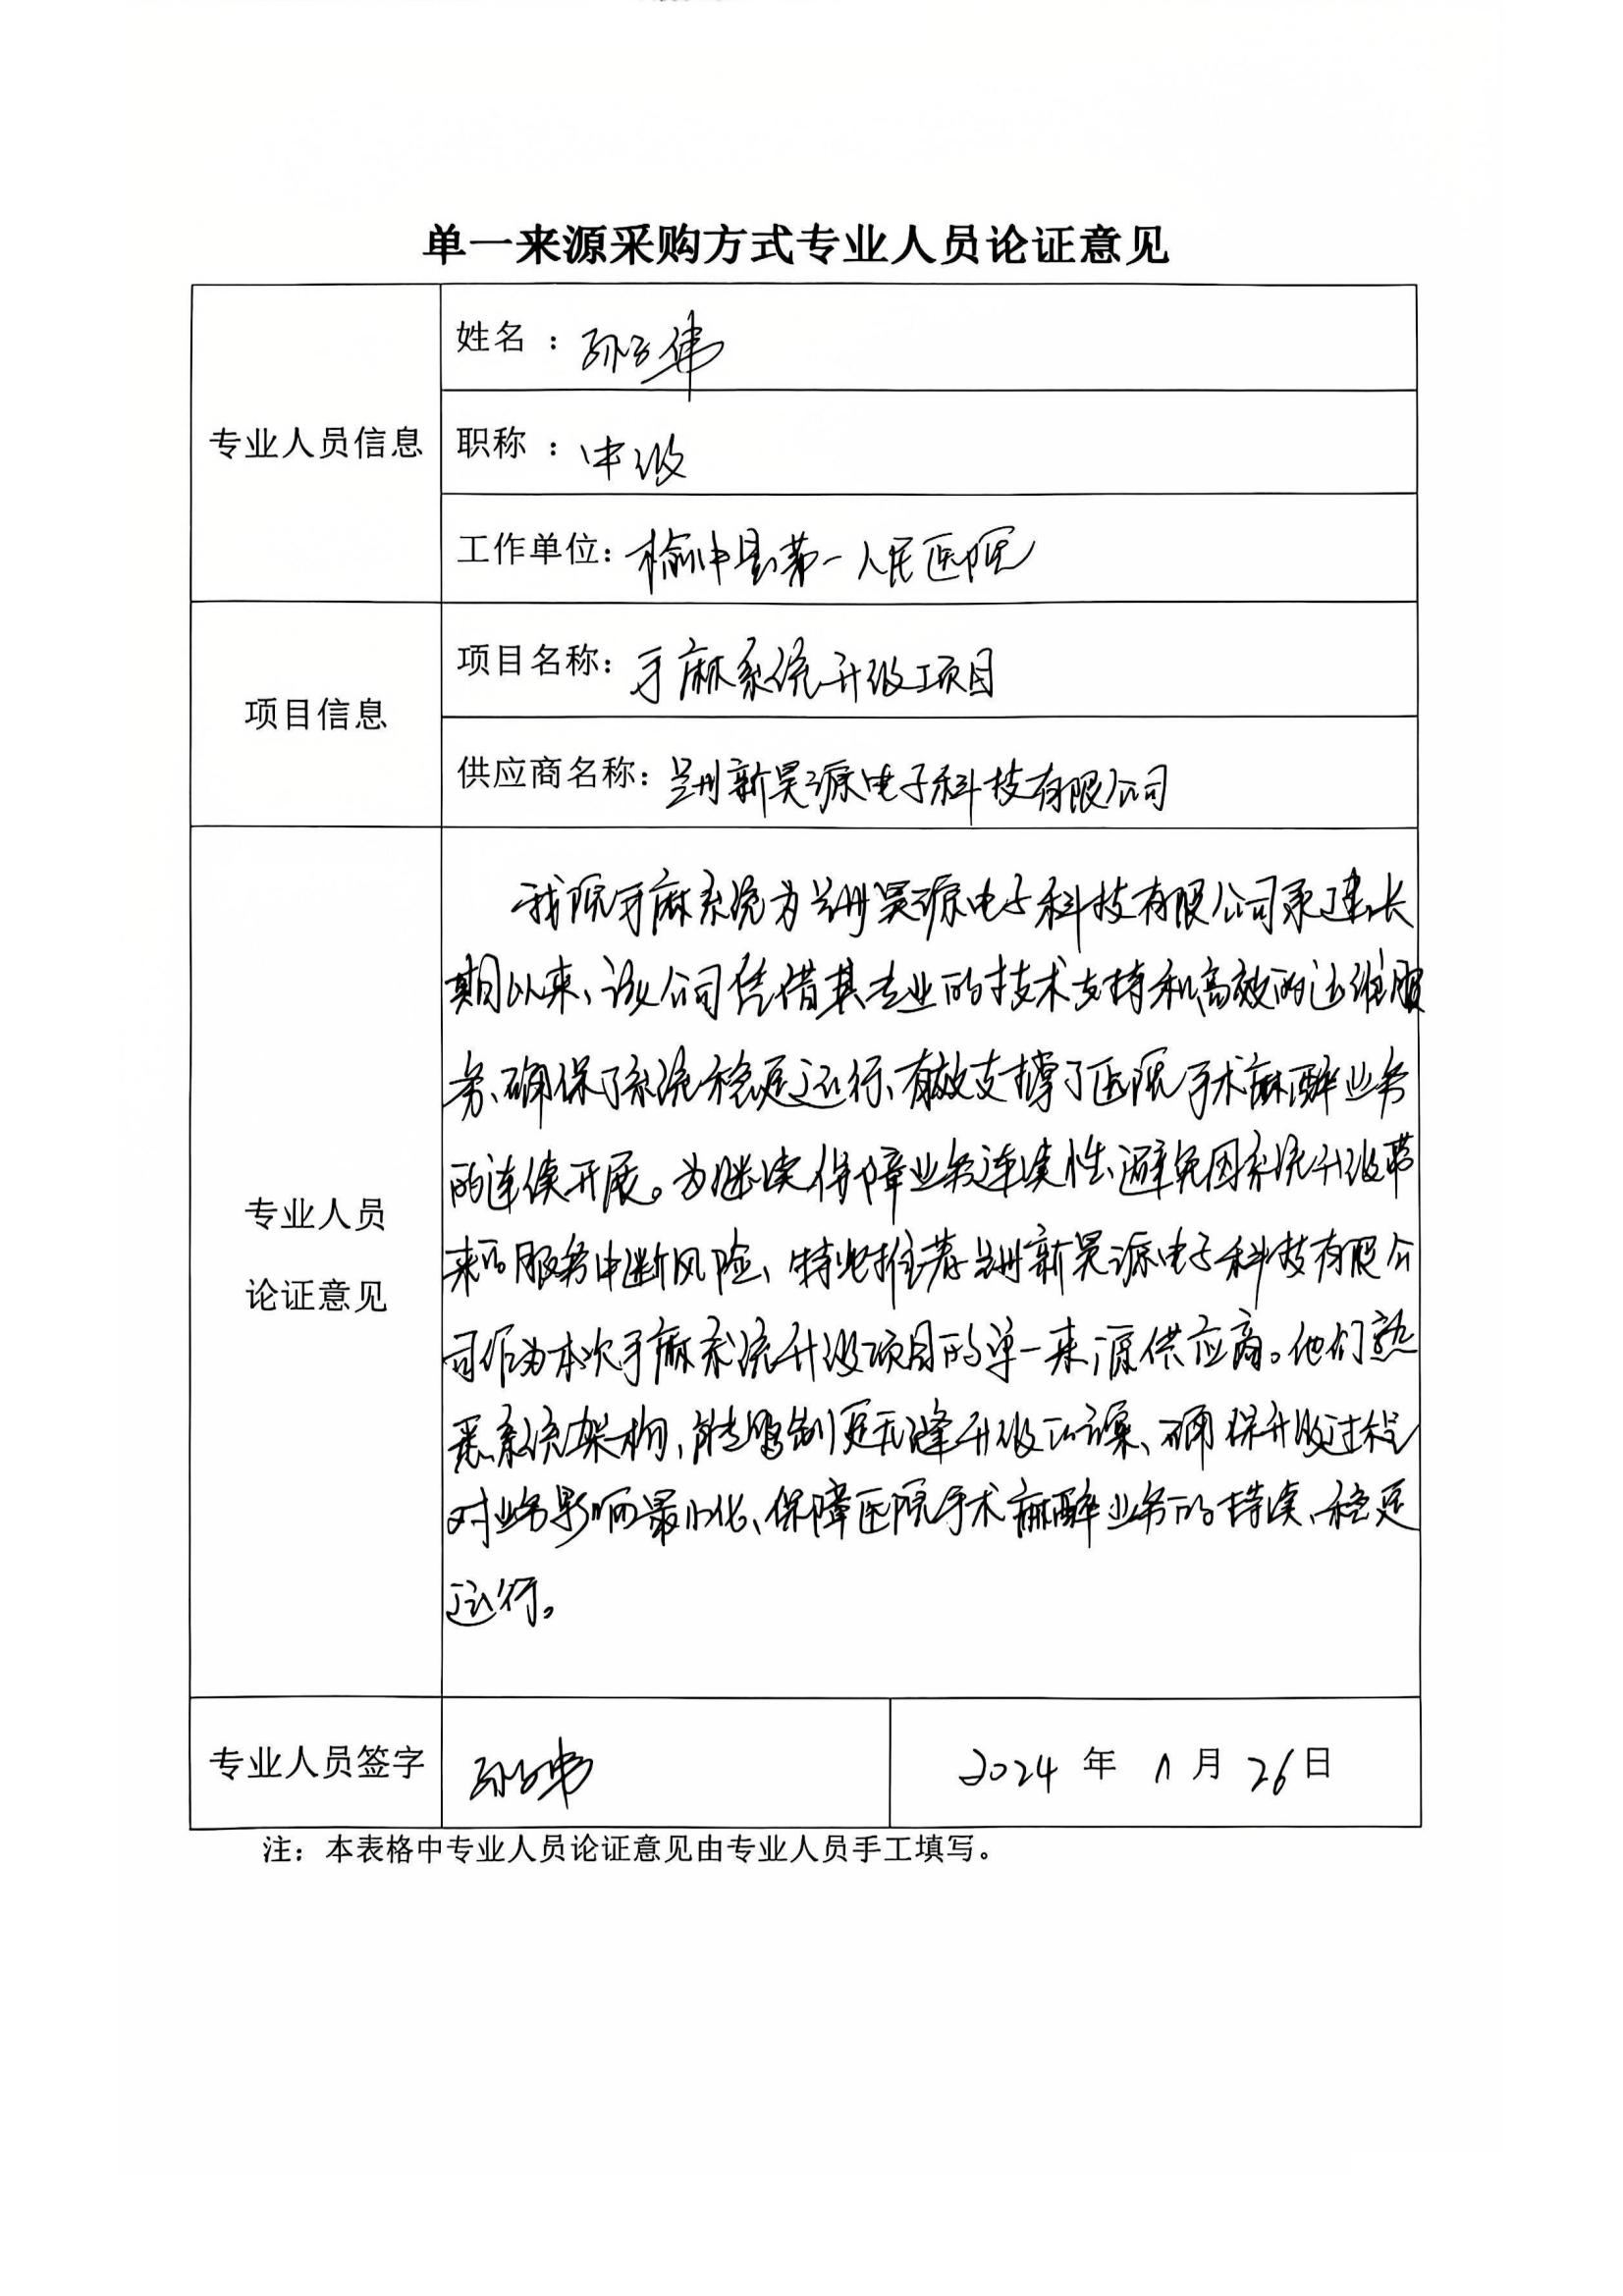 单一来源采购方式专业人员论证意见
专业人员信息
姓名：孙立伟
职称：中级
工作单位：榆中县第一人民医院
项目信息
项目名称：手麻系统升级项目
供应商名称：兰州新昊源电子科技有限公司
专业人员
论证意见
我院手麻系统为兰州昊源电子科技有限公司承建，长
期以来，该公司凭借其专业的技术支持和高效的运维服
务，确保了系统稳定运行，有效支撑了医院手术麻醉业务
的连续开展。为继续保障业务连续性，避免因系统升级带
来的服务中断风险，特此推荐兰州新昊源电子科技有限公
司作为本次手麻系统升级项目的单一来源供应商。他们熟
悉系统架构，能够制定无缝升级方案，确保升级过程
对业务影响最小化，保障医院手术麻醉业务的持续、稳定
运行。
专业人员签字
孙立伟
2024 年 11 月 26 日
注：本表格中专业人员论证意见由专业人员手工填写。